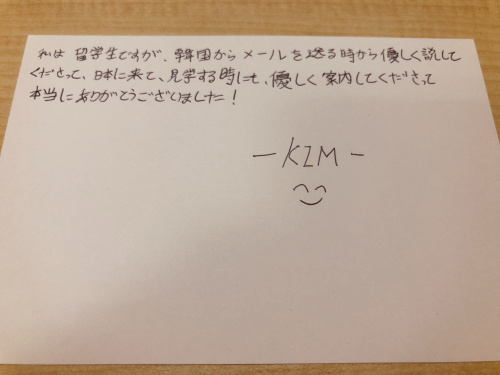 私は 留学生ですが、韓国から メールを送る時から優しく説して
くださって、日本に来て、見学する時にも、優しく案内してくださって
本当に ありがとうございました!
- KIM -